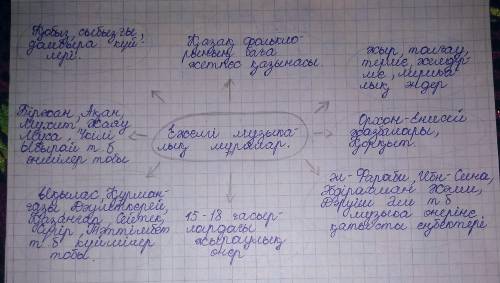 Қобыз, сыбызғы,
домбыра күй-
лері.
Қазақ фолькло-
рының баға
жетпес қазынасы
жыр, толғау,
терме, желдір-
ме, лирика-
лық әндер
Біржан, Ақан,
Мұхит, Жаяу
Мұса, Үкілі
Ыбырай т.б
әншілер тобы
Ежелгі музыка-
лық мұралар.
Орхон-Енисей
жазбалары,
Қорқыт.
Ықылас, Құрман-
ғазы, Дәулеткерей,
Қазанғап, Сейтек,
Түркеш, Тәттімбет
т.б күйшілер
тобы.
15-18 ғасыр-
лардағы
жыраулық
өнер
әл-Фараби, Ибн-Сина,
Әбдірахман Жами,
Дәруіш Әли т.б
музыка өнеріне
қатысты еңбектері